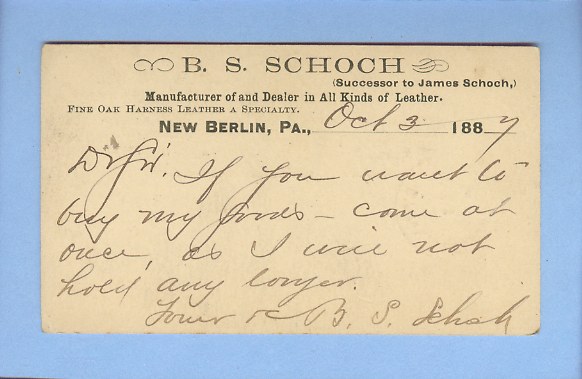 B. S. SCHOCH
(Successor to James Schoch,)
Manufacturer of and Dealer in All Kinds of Leather.
FINE OAK HARNESS LEATHER A SPECIALTY.
NEW BERLIN, PA., Oct 3 1887
Dr Sir. If you want to
buy my goods – come at
once, as I will not
hold any longer.
Your &c B. S. Schoch